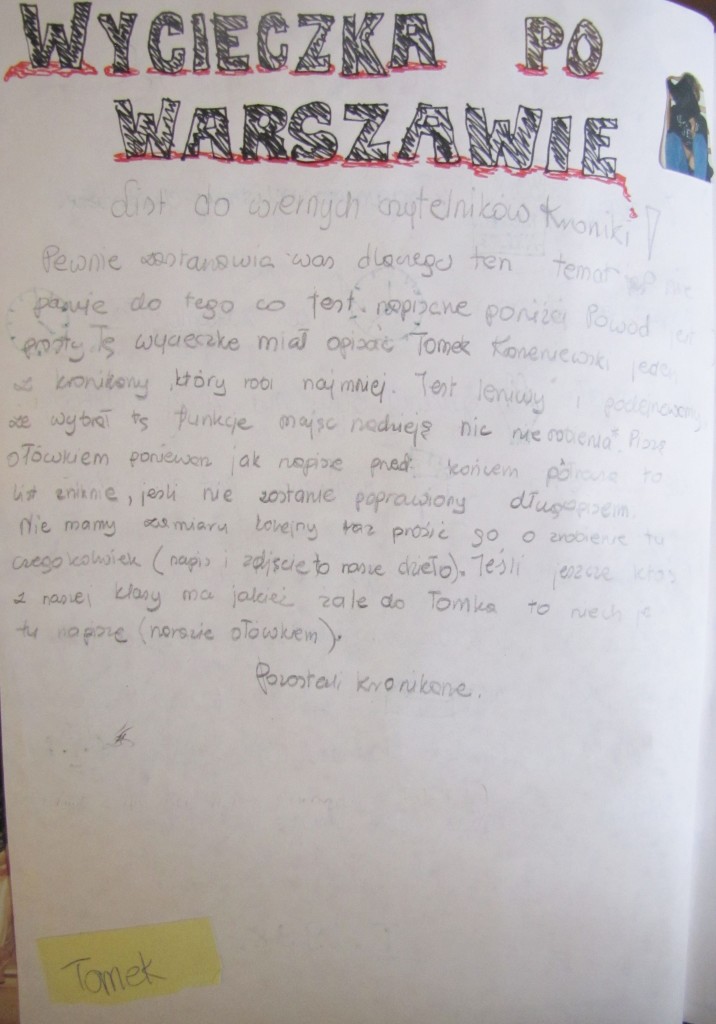 WYCIECZKA PO
WARSZAWIE
List do wiernych czytelników Kroniki!
Pewnie zastanawia was dlaczego ten temat nie
pasuje do tego co jest napisane poniżej Powód jest
prosty. Tę wycieczkę miał opisać Tomek jeden
z kronikarzy, który robi najmniej. Jest leniwy i
że wybrał tę funkcje mając nadzieję nic nie robienia". Piszę
ołówkiem ponieważ jak napisze przed końcem półrocza to
list zniknie, jeśli nie zostanie poprawiony długopisem.
Nie mamy zamiaru kolejny raz prosić go o zrobienie tu
czegokolwiek (napis i zdjęcie to nasze dzieło). Jeśli jeszcze ktoś
z naszej klasy ma jakieś żale do Tomka to niech je
tu napisze (narazie ołówkiem).
Pozostali kronikarze.
Tomek